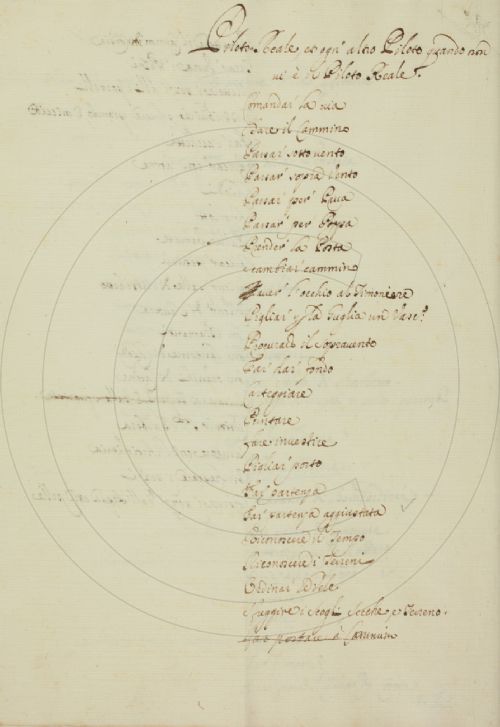 Piloto Reale, et ogn' altro Piloto quando non
vi è il Piloto Reale.
Comandar la via
Dare il Cammino
Passar sotto vento
Passar sopra Vento
Passar per Prua
Passar per Poppa
Prender la Posta
Scambiar cammino
Haver l'occhio al Timoniere
Pigliar la Buglia un Vasc.º
Procurare il Sopravento
Far dar fondo
Carteggiare
Puntare
fare investire
Pigliar porto
Far partenza
Far partenza aggiustata
Riconoscere il Tempo
Riconoscere i Terreni
Ordinar le Vele
Sfuggire i Scogli Secche, e Terreno.
far portare il Cammin